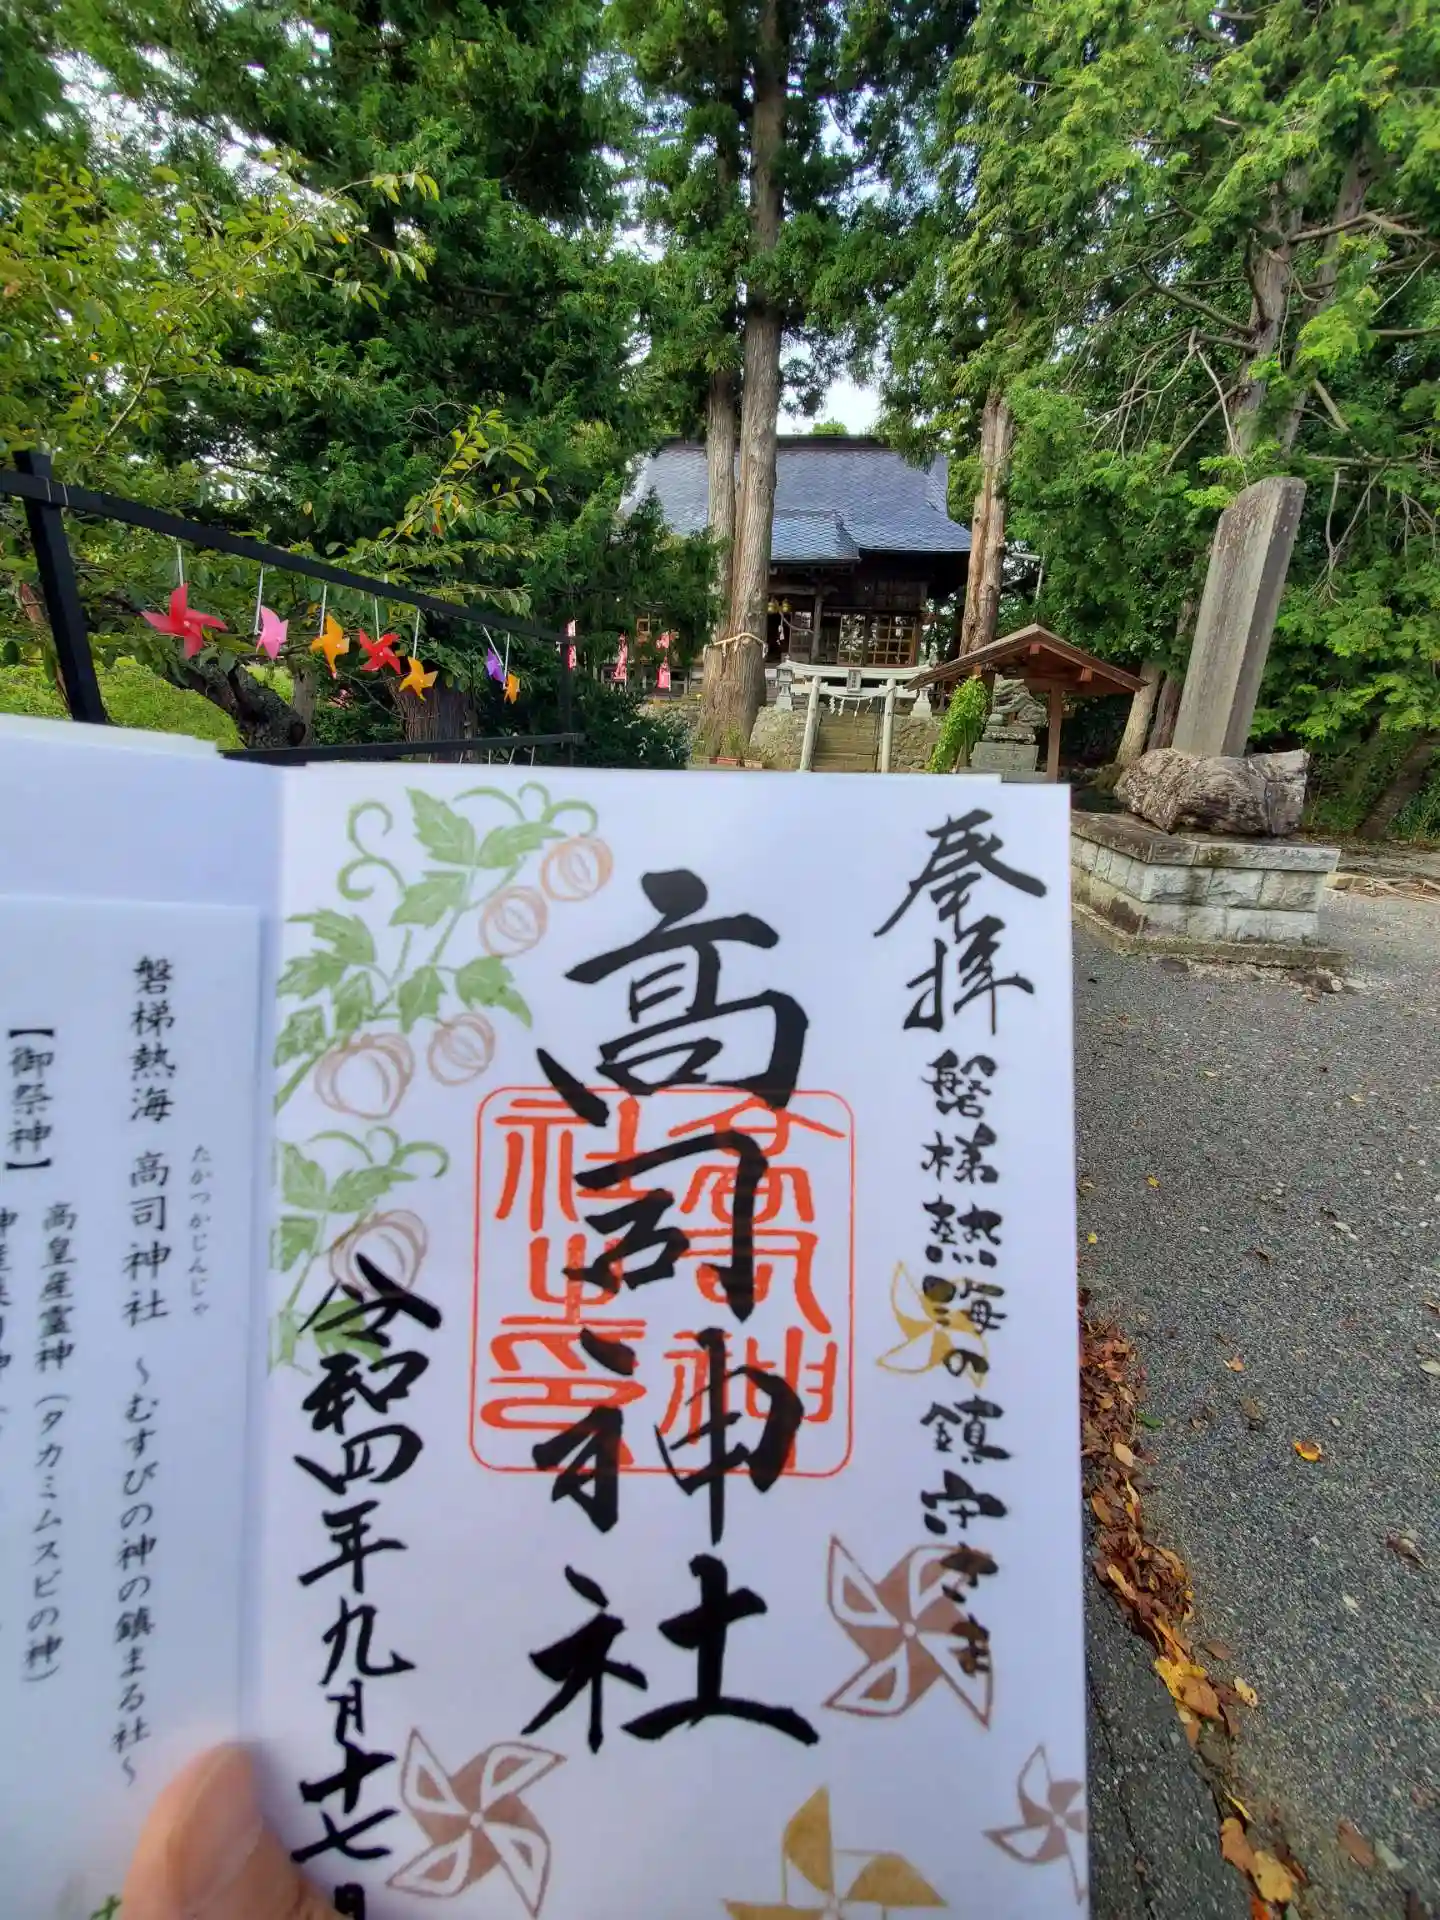 奉拝
磐梯熱海の鎮守さま
高司神社
高司神社之印
令和四年九月十七日
たかつかじんじゃ
磐梯熱海 高司神社 ～むすびの神の鎮まる社～
【御祭神】
高皇産霊神(タカミムスビの神)